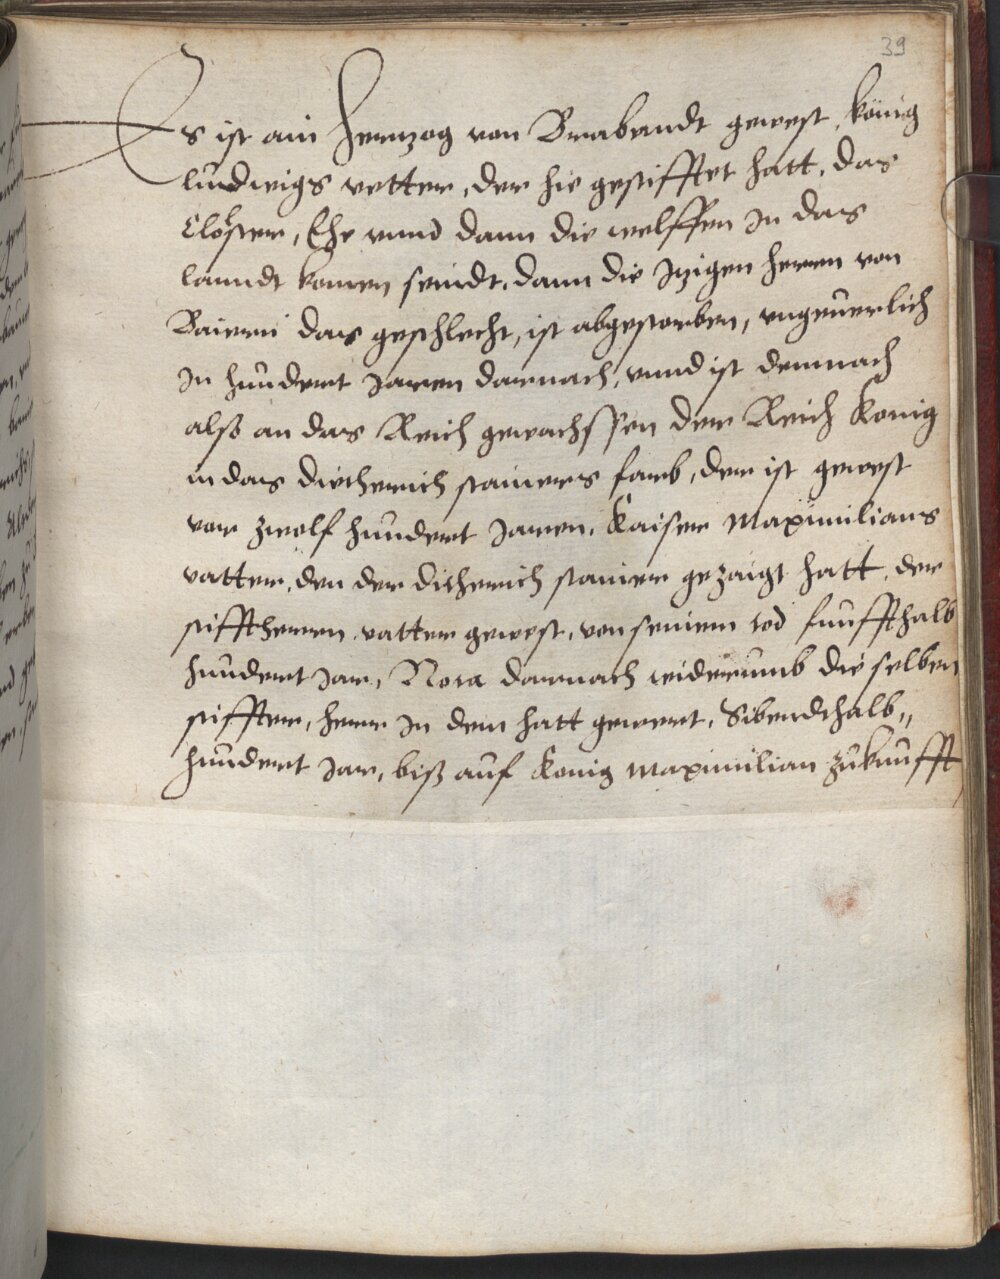 39
Es ist ain Herrzog von Brabandt gewest, könig
ludwigs vetter, der hie gestifftet hatt, das
Closter, Ehe vnnd dann die welffen In das
lanndt komen seindt, dann die Jezigen herren von
Baiern das geschlecht, ist abgestorben, vngeuerlich
In hundert Jaren darnach, vnnd ist demnach
alß an das Reich gewachssen der Reich Konig
in das dietherich stainers farb, der ist gewest
vor zwölf hundert Jaren, Kaiser Maximilians
vatter, den der dietherich stainer gezaigt hatt, der
stifftherren vatter gewest, von seinem tod funffthalb
hundert Jar, Nota darnach widerumb die selben
stiffter, herr In dem hatt gewert, Sibendthalb„
hundert Jar, biß auf Konig Maximilian zukunfft